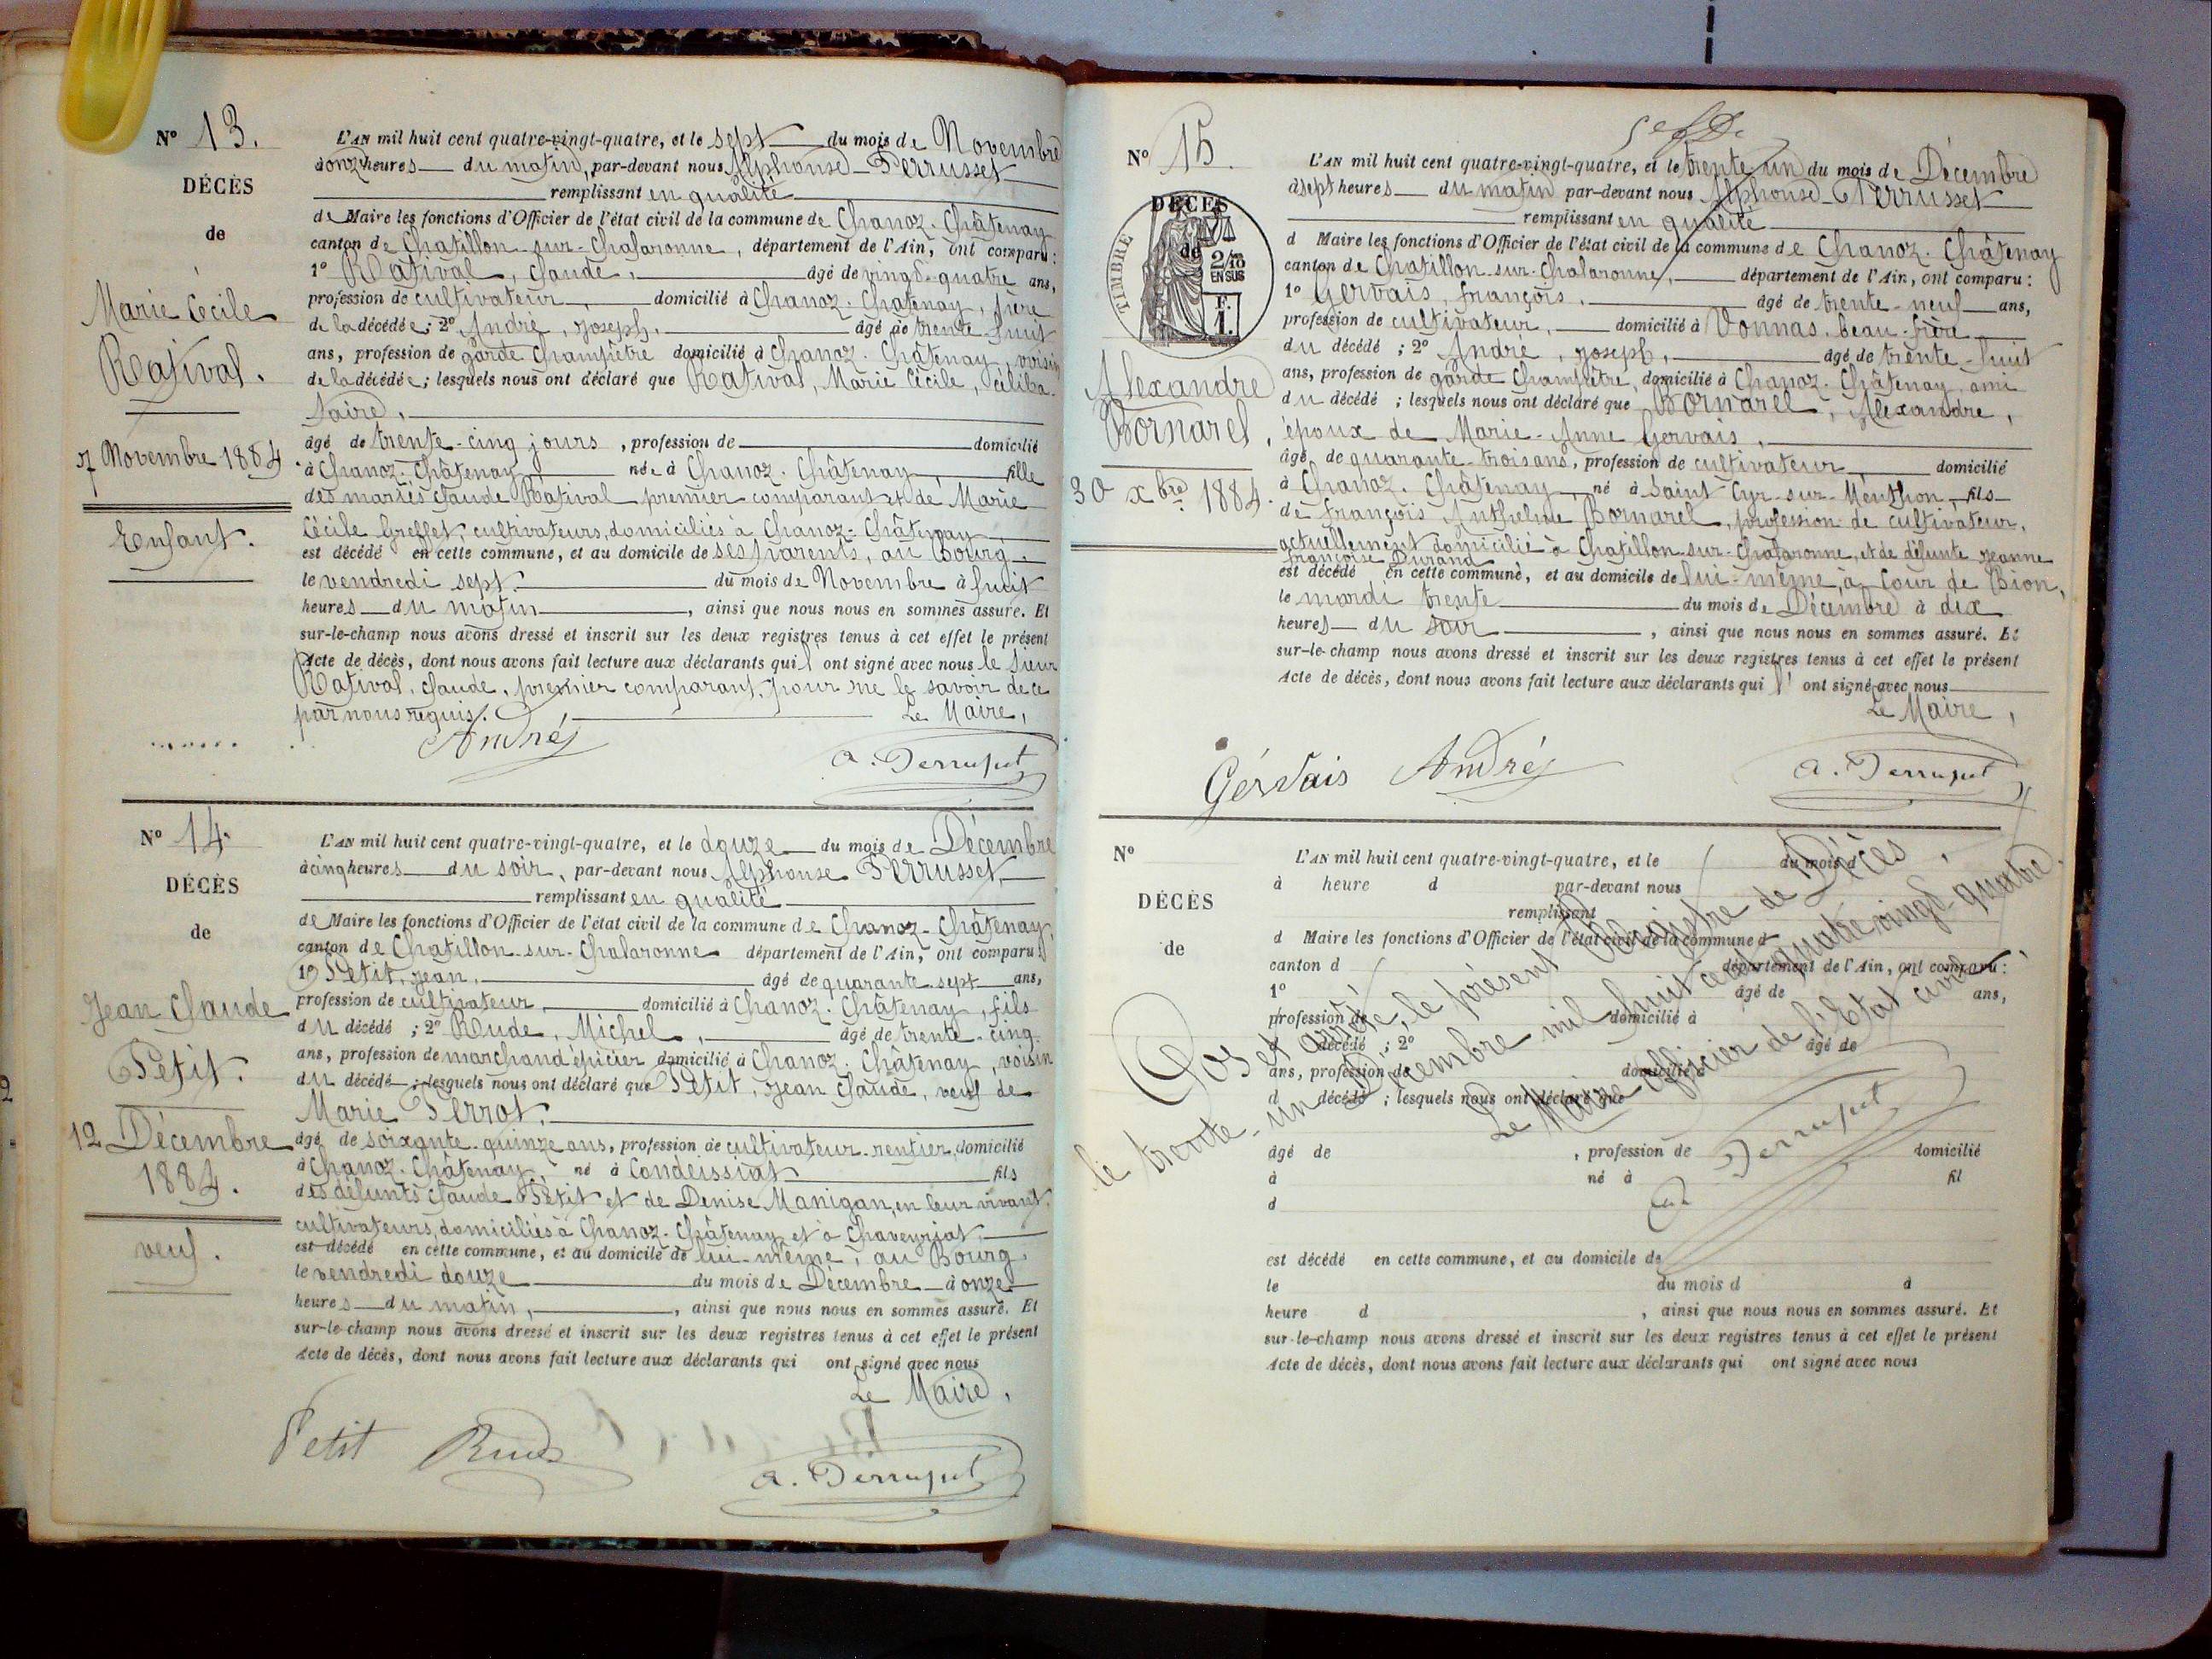 N° 13.
DÉCÈS
de
Marie Cécile
Rativat.
7 Novembre 1884
Enfant.
L'AN mil huit cent quatre-vingt-quatre, et le sept du mois de Novembre
à onze heures du matin, par-devant nous Alphonse Perrusset
remplissant en qualité
de Maire les fonctions d'Officier de l'état civil de la commune de Chanoz-Châtenay
canton de Chatillon-sur-Chalaronne, département de l'Ain, ont comparu:
1° Rativat, Claude, âgé de vingt-quatre ans,
profession de cultivateur, domicilié à Chanoz-Châtenay, père
de la décédée; 2° André, Joseph, âgé de trente-huit
ans, profession de garde champêtre domicilié à Chanoz-Châtenay, voisin
de la décédée; lesquels nous ont déclaré que Rativat, Marie Cécile, céliba-
taire,
âgé de trente-cinq jours, profession de domicilié
à Chanoz-Châtenay, née à Chanoz-Châtenay, fille
des mariés Claude Rativat premier comparant et de Marie
Cécile Greffet, cultivateurs, domiciliés à Chanoz-Châtenay
est décédé en cette commune, et au domicile de ses parents, au Bourg
le vendredi sept du mois de Novembre à huit
heures du matin, ainsi que nous nous en sommes assuré. Et
sur-le-champ nous avons dressé et inscrit sur les deux registres tenus à cet effet le présent
Acte de décès, dont nous avons fait lecture aux déclarants qui ont signé avec nous le sieur
Rativat, Claude, premier comparant, pour ne le savoir de ce
par nous requis.
Le Maire,
André
A. Perrusset
N° 14.
DÉCÈS
de
Jean Claude
Petit.
12 Décembre
1884.
veuf.
L'AN mil huit cent quatre-vingt-quatre, et le douze du mois de Décembre
à cinq heures du soir, par-devant nous Alphonse Perrusset,
remplissant en qualité
de Maire les fonctions d'Officier de l'état civil de la commune de Chanoz-Châtenay,
canton de Chatillon-sur-Chalaronne département de l'Ain, ont comparu:
1° Petit, Jean, âgé de quarante-sept ans,
profession de cultivateur, domicilié à Chanoz-Châtenay, fils
du décédé; 2° Rude, Michel, âgé de trente-cinq
ans, profession de marchand épicier domicilié à Chanoz-Châtenay, voisin
du décédé; lesquels nous ont déclaré que Petit, Jean Claude, veuf de
Marie Perrot,
âgé de soixante-quinze ans, profession de cultivateur-rentier, domicilié
à Chanoz-Châtenay, né à Condeissiat fils
des défunts Claude Petit et de Denise Manigan, en leur vivant
cultivateurs, domiciliés à Chanoz-Châtenay et à Chaveyriat,
est décédé en cette commune, et au domicile de lui-même, au Bourg
le vendredi douze du mois de Décembre à onze
heures du matin, ainsi que nous nous en sommes assuré. Et
sur-le-champ nous avons dressé et inscrit sur les deux registres tenus à cet effet le présent
Acte de décès, dont nous avons fait lecture aux déclarants qui ont signé avec nous
Le Maire,
Petit Rude
A. Perrusset
N° 15.
DÉCÈS
de
TIMBRE
2/10
EN SUS
F.
1.
Alexandre
Bornarel,
30 Xbre 1884.
L'AN mil huit cent quatre-vingt-quatre, et le trente un du mois de Décembre
à sept heures du matin par-devant nous Alphonse Perrusset
remplissant en qualité
d Maire les fonctions d'Officier de l'état civil de la commune de Chanoz-Châtenay
canton de Chatillon-sur-Chalaronne, département de l'Ain, ont comparu:
1° Gervais, François, âgé de trente-neuf ans,
profession de cultivateur, domicilié à Vonnas, beau-frère
du décédé; 2° André, Joseph, âgé de trente-huit
ans, profession de garde champêtre, domicilié à Chanoz-Châtenay, ami
du décédé; lesquels nous ont déclaré que Bornarel, Alexandre,
époux de Marie-Anne Gervais,
âgé de quarante-trois ans, profession de cultivateur, domicilié
à Chanoz-Châtenay, né à Saint Cyr-sur-Menthon, fils
de François Anthelme Bornarel, profession de cultivateur,
actuellement domicilié à Chatillon-sur-Chalaronne, et de défunte Jeanne
Françoise Durand
est décédé en cette commune, et au domicile de lui-même, à Cour de Bion,
le mardi trente du mois de Décembre à dix
heures du soir, ainsi que nous nous en sommes assuré. Et
sur-le-champ nous avons dressé et inscrit sur les deux registres tenus à cet effet le présent
Acte de décès, dont nous avons fait lecture aux déclarants qui ont signé avec nous
Le Maire,
Gervais André
A. Perrusset
N°
DÉCÈS
de
L'AN mil huit cent quatre-vingt-quatre, et le du mois d
à heure d par-devant nous
remplissant
d Maire les fonctions d'Officier de l'état civil de la commune d
canton d département de l'Ain, ont comparu:
1° âgé de ans,
profession de domicilié à
d décédé; 2° âgé de
ans, profession de domicilié à
d décédé; lesquels nous ont déclaré que
âgé de, profession de domicilié
à né à fil
d
est décédé en cette commune, et au domicile de
le du mois d à
heure d, ainsi que nous nous en sommes assuré. Et
sur-le-champ nous avons dressé et inscrit sur les deux registres tenus à cet effet le présent
Acte de décès, dont nous avons fait lecture aux déclarants qui ont signé avec nous
Clos et arrêté, le présent Registre de Décès,
le trente-un Décembre mil huit cent quatre-vingt-quatre.
Le Maire officier de l'Etat civil,
A. Perrusset